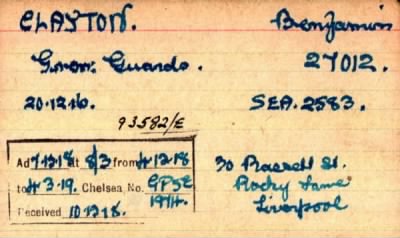 CLAYTON. Benjamin
Gren: Guards. 27012.
20.12.16. SEA. 2583.
93582/E
Ad 7.12.18 at 8/3 from 4.12.18
to 4.3.19. Chelsea No. GPSE
1914.
Received 10.12.18.
30 St.
Rocky Lane
Liverpool